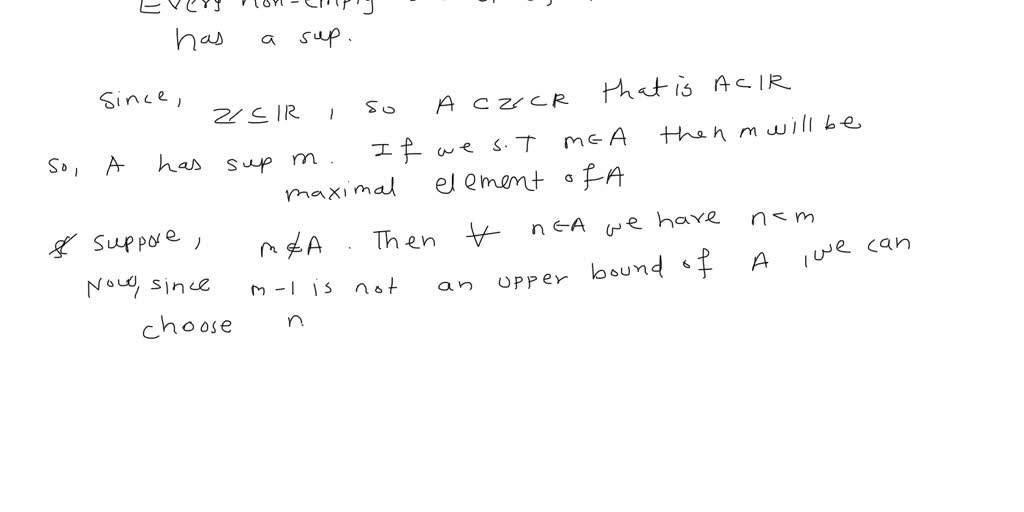 Every non-empty
has a sup.
Since, ℤ ⊆ ℝ, so A ⊂ ℤ ⊂ ℝ that is A ⊂ ℝ
So, A has sup m. If we s.T m ∈ A then m will be
maximal element of A
Suppose, m ∉ A. Then ∀ n ∈ A we have n < m
Now, since m-1 is not an upper bound of A, we can
choose n